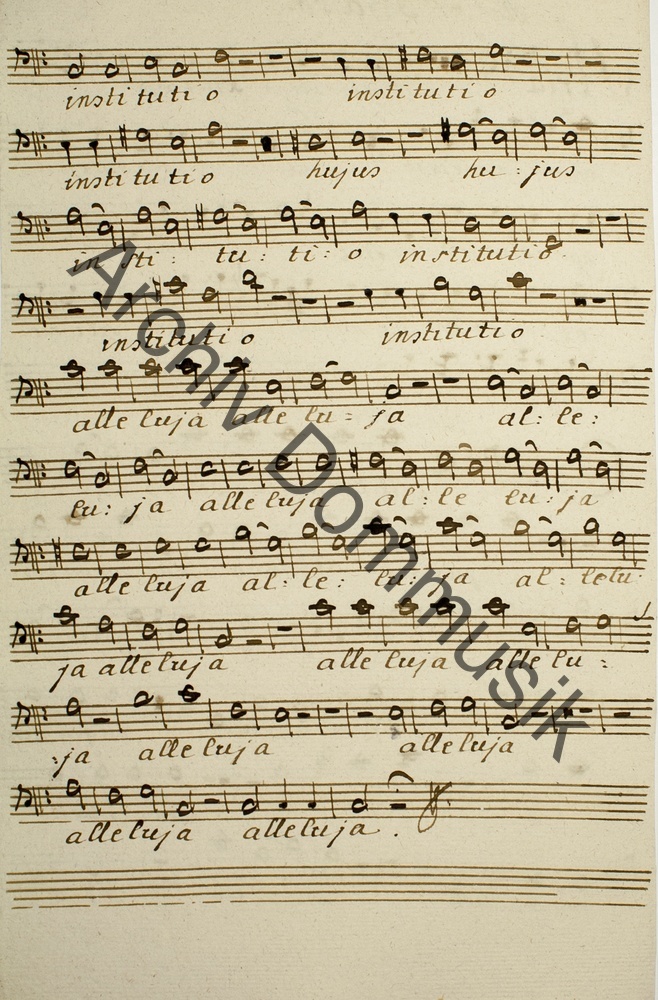 institutio institutio
institutio hujus hu : jus
in sti : tu : ti : o institutio.
institutio institutio
alleluja alle lu = ja al : le :
lu : ja alleluja al : le lu : ja
alleluja al : le : lu : ja al : lelu
ja alleluja alleluja alle lu :
: ja alleluja alleluja
alleluja alleluja .
Archiv Dommusik